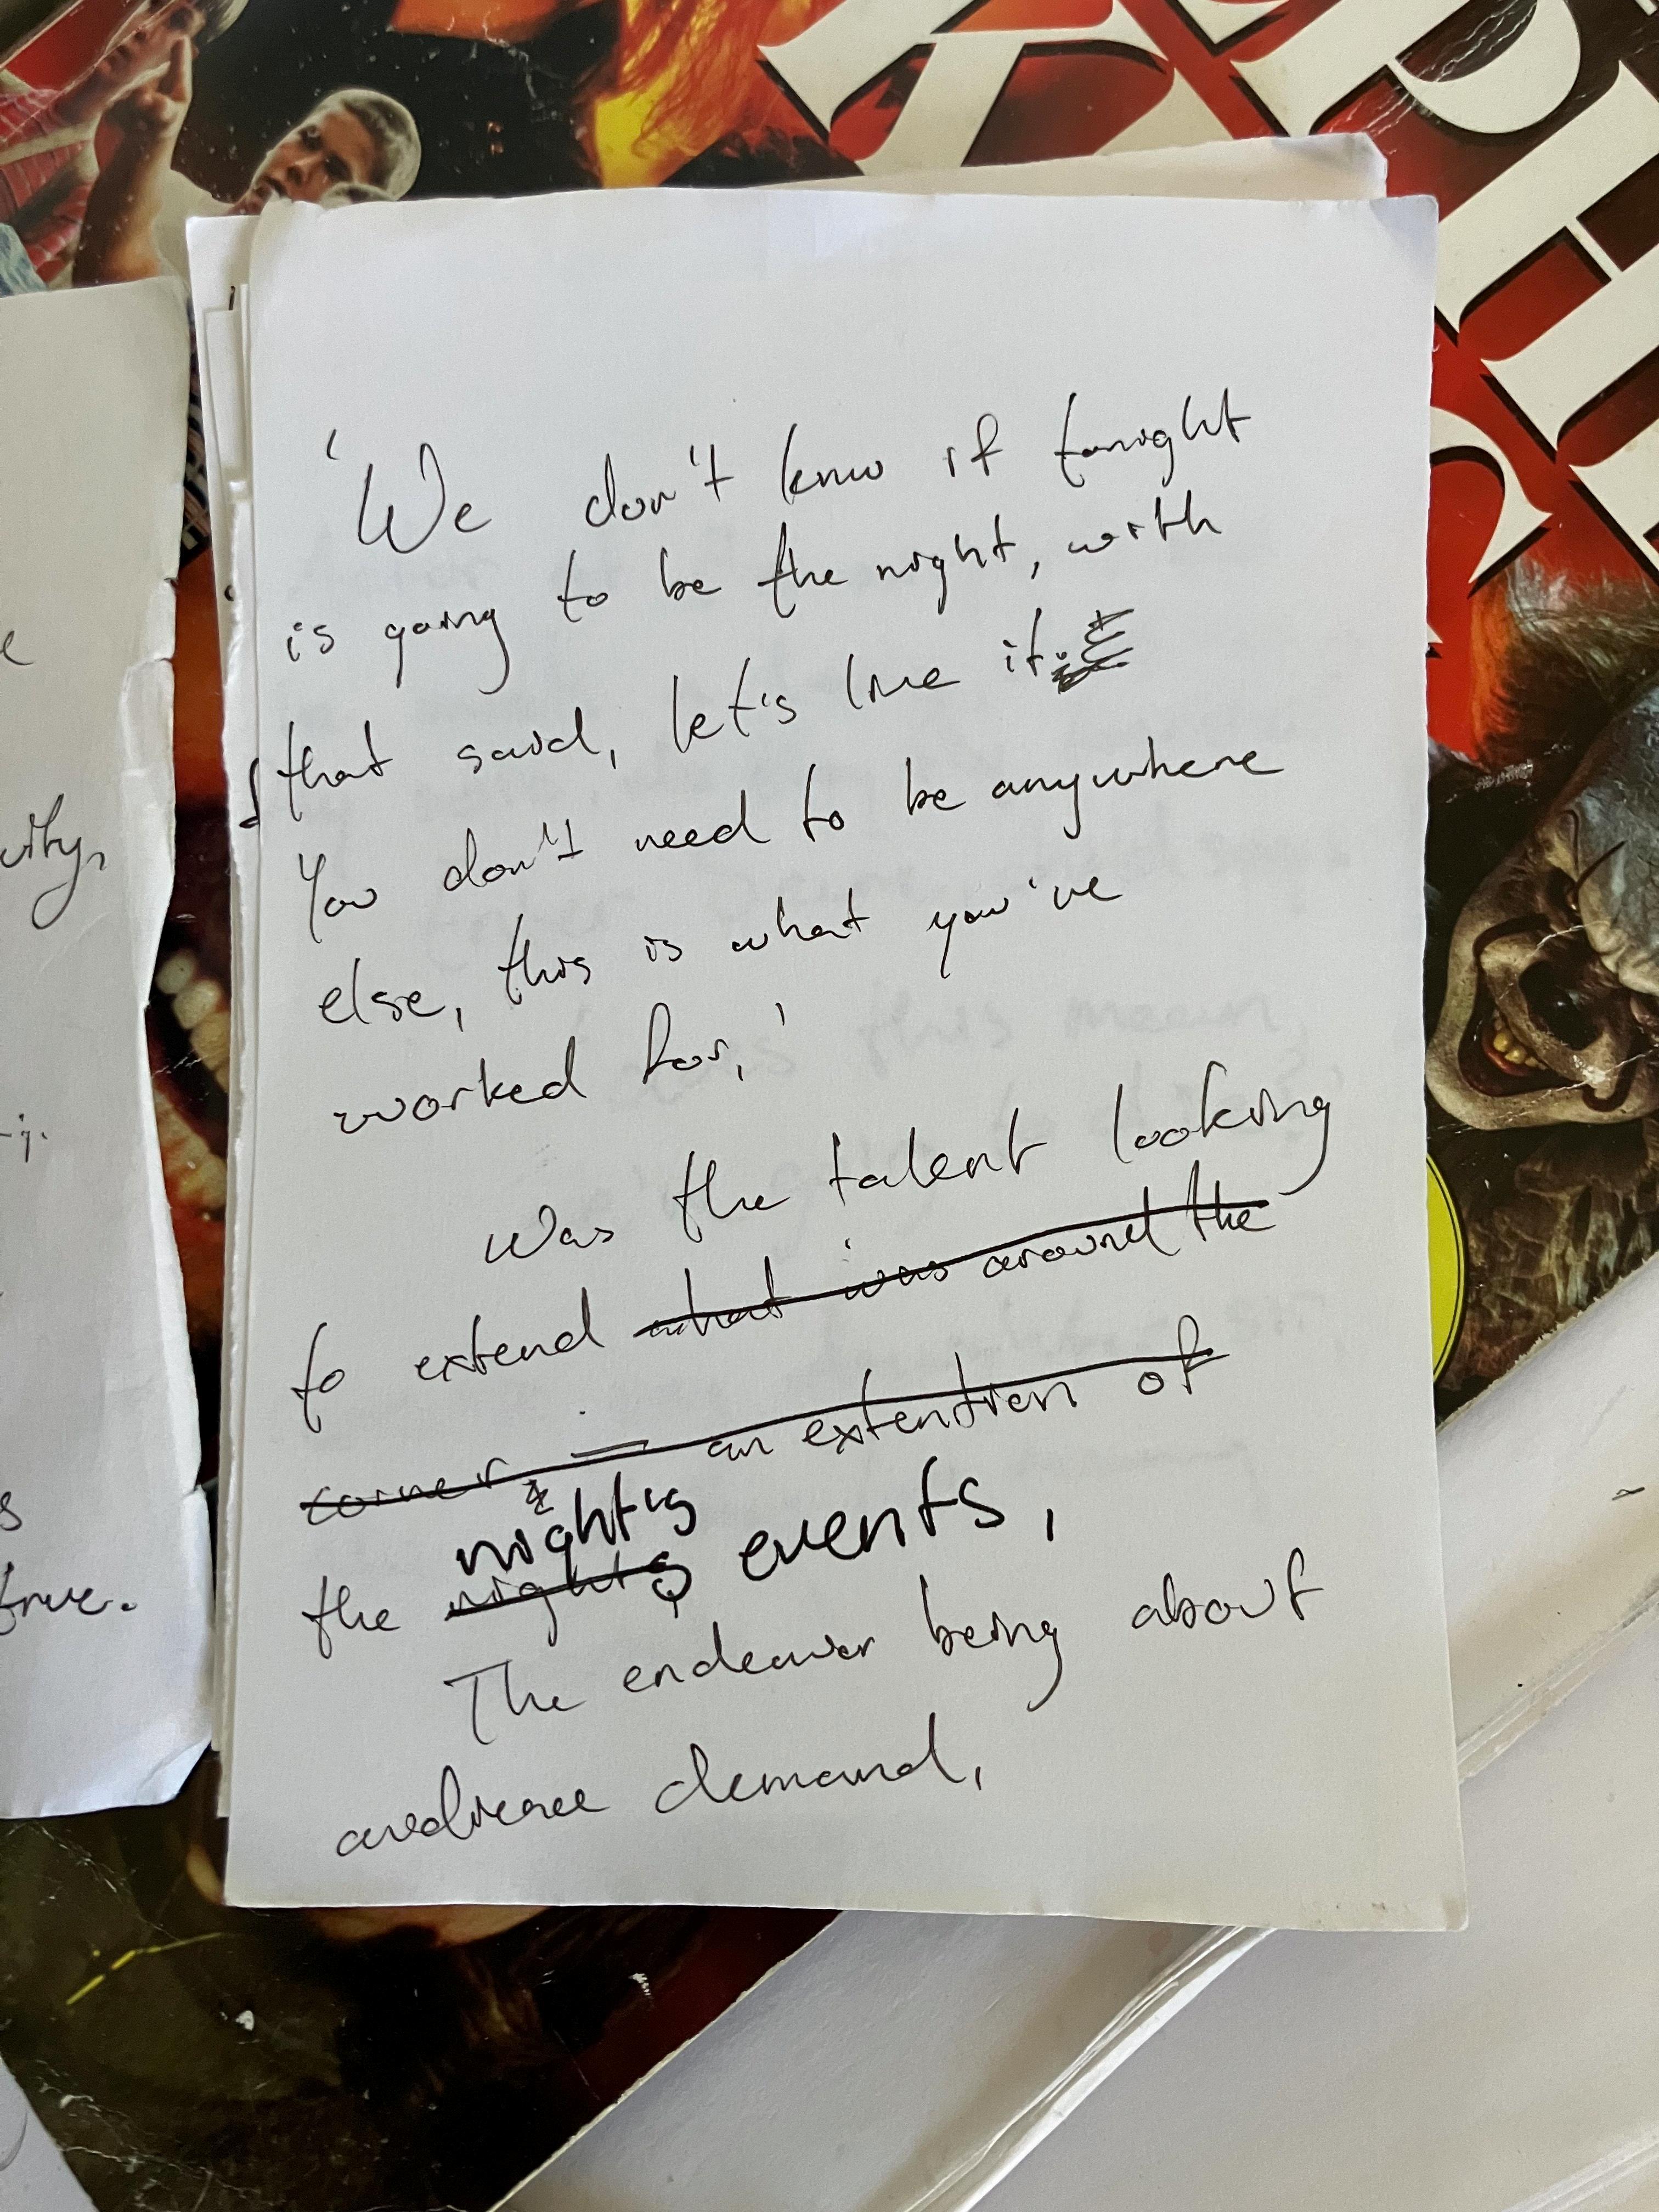 'We don't know if tonight
is going to be the night, with
that said, let's live it.
You don't need to be anywhere
else, this is what you've
worked for,'
Was the talent looking
to extend ~~what was around the~~
~~corner — an extention of~~
night's
the ~~nights~~ events,
The endeavor being about
audience demand,
true.